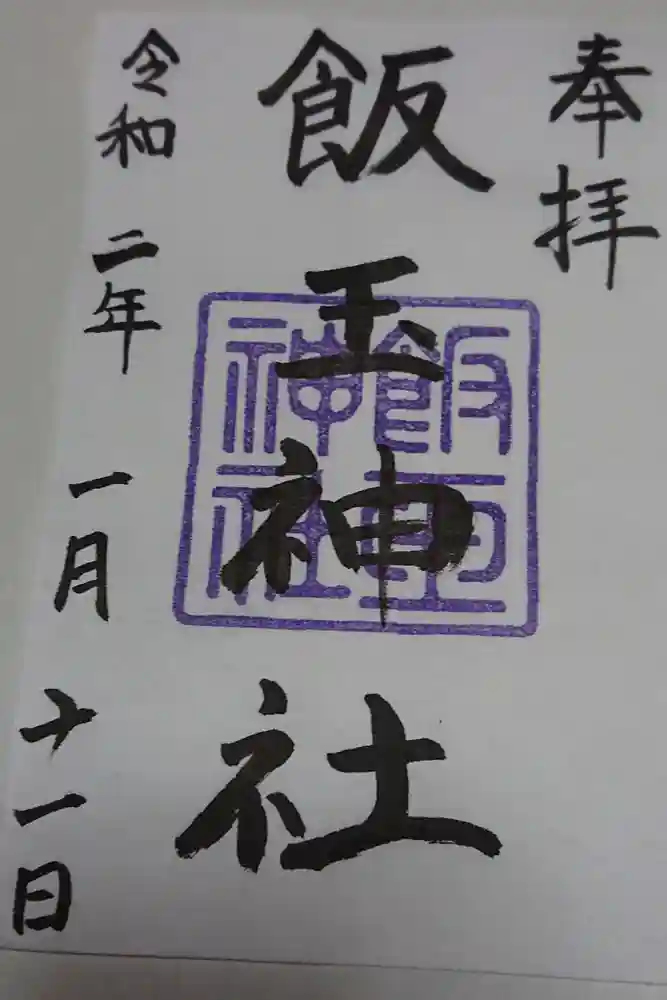 奉拝
飯玉神社
飯玉
神社
令和二年一月十一日